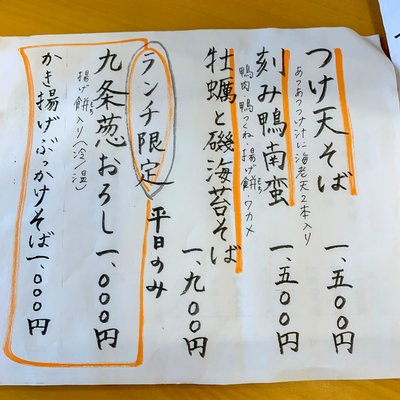 つけ天そば 一、五〇〇円
あつあつつけ汁に海老天2本入り
刻み鴨南蛮 一、五〇〇円
鴨肉・鴨つくね・揚げ餅・ワカメ
もち
牡蠣と磯海苔そば 一、九〇〇円
ランチ限定 平日のみ
九条葱おろし 一、〇〇〇円
揚げ餅入り(冷/温)
もち
かき揚げぶっかけそば 一、〇〇〇円